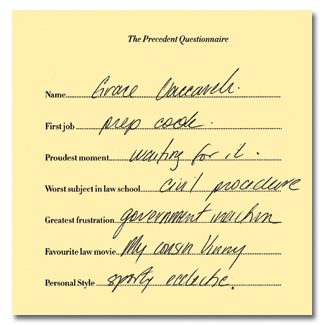 The Precedent Questionnaire
Name Grace Vaccarelli.
First job prep cook.
Proudest moment waiting for it.
Worst subject in law school civil procedure
Greatest frustration government inaction
Favourite law movie My cousin Vinny
Personal Style sporty eclectic.